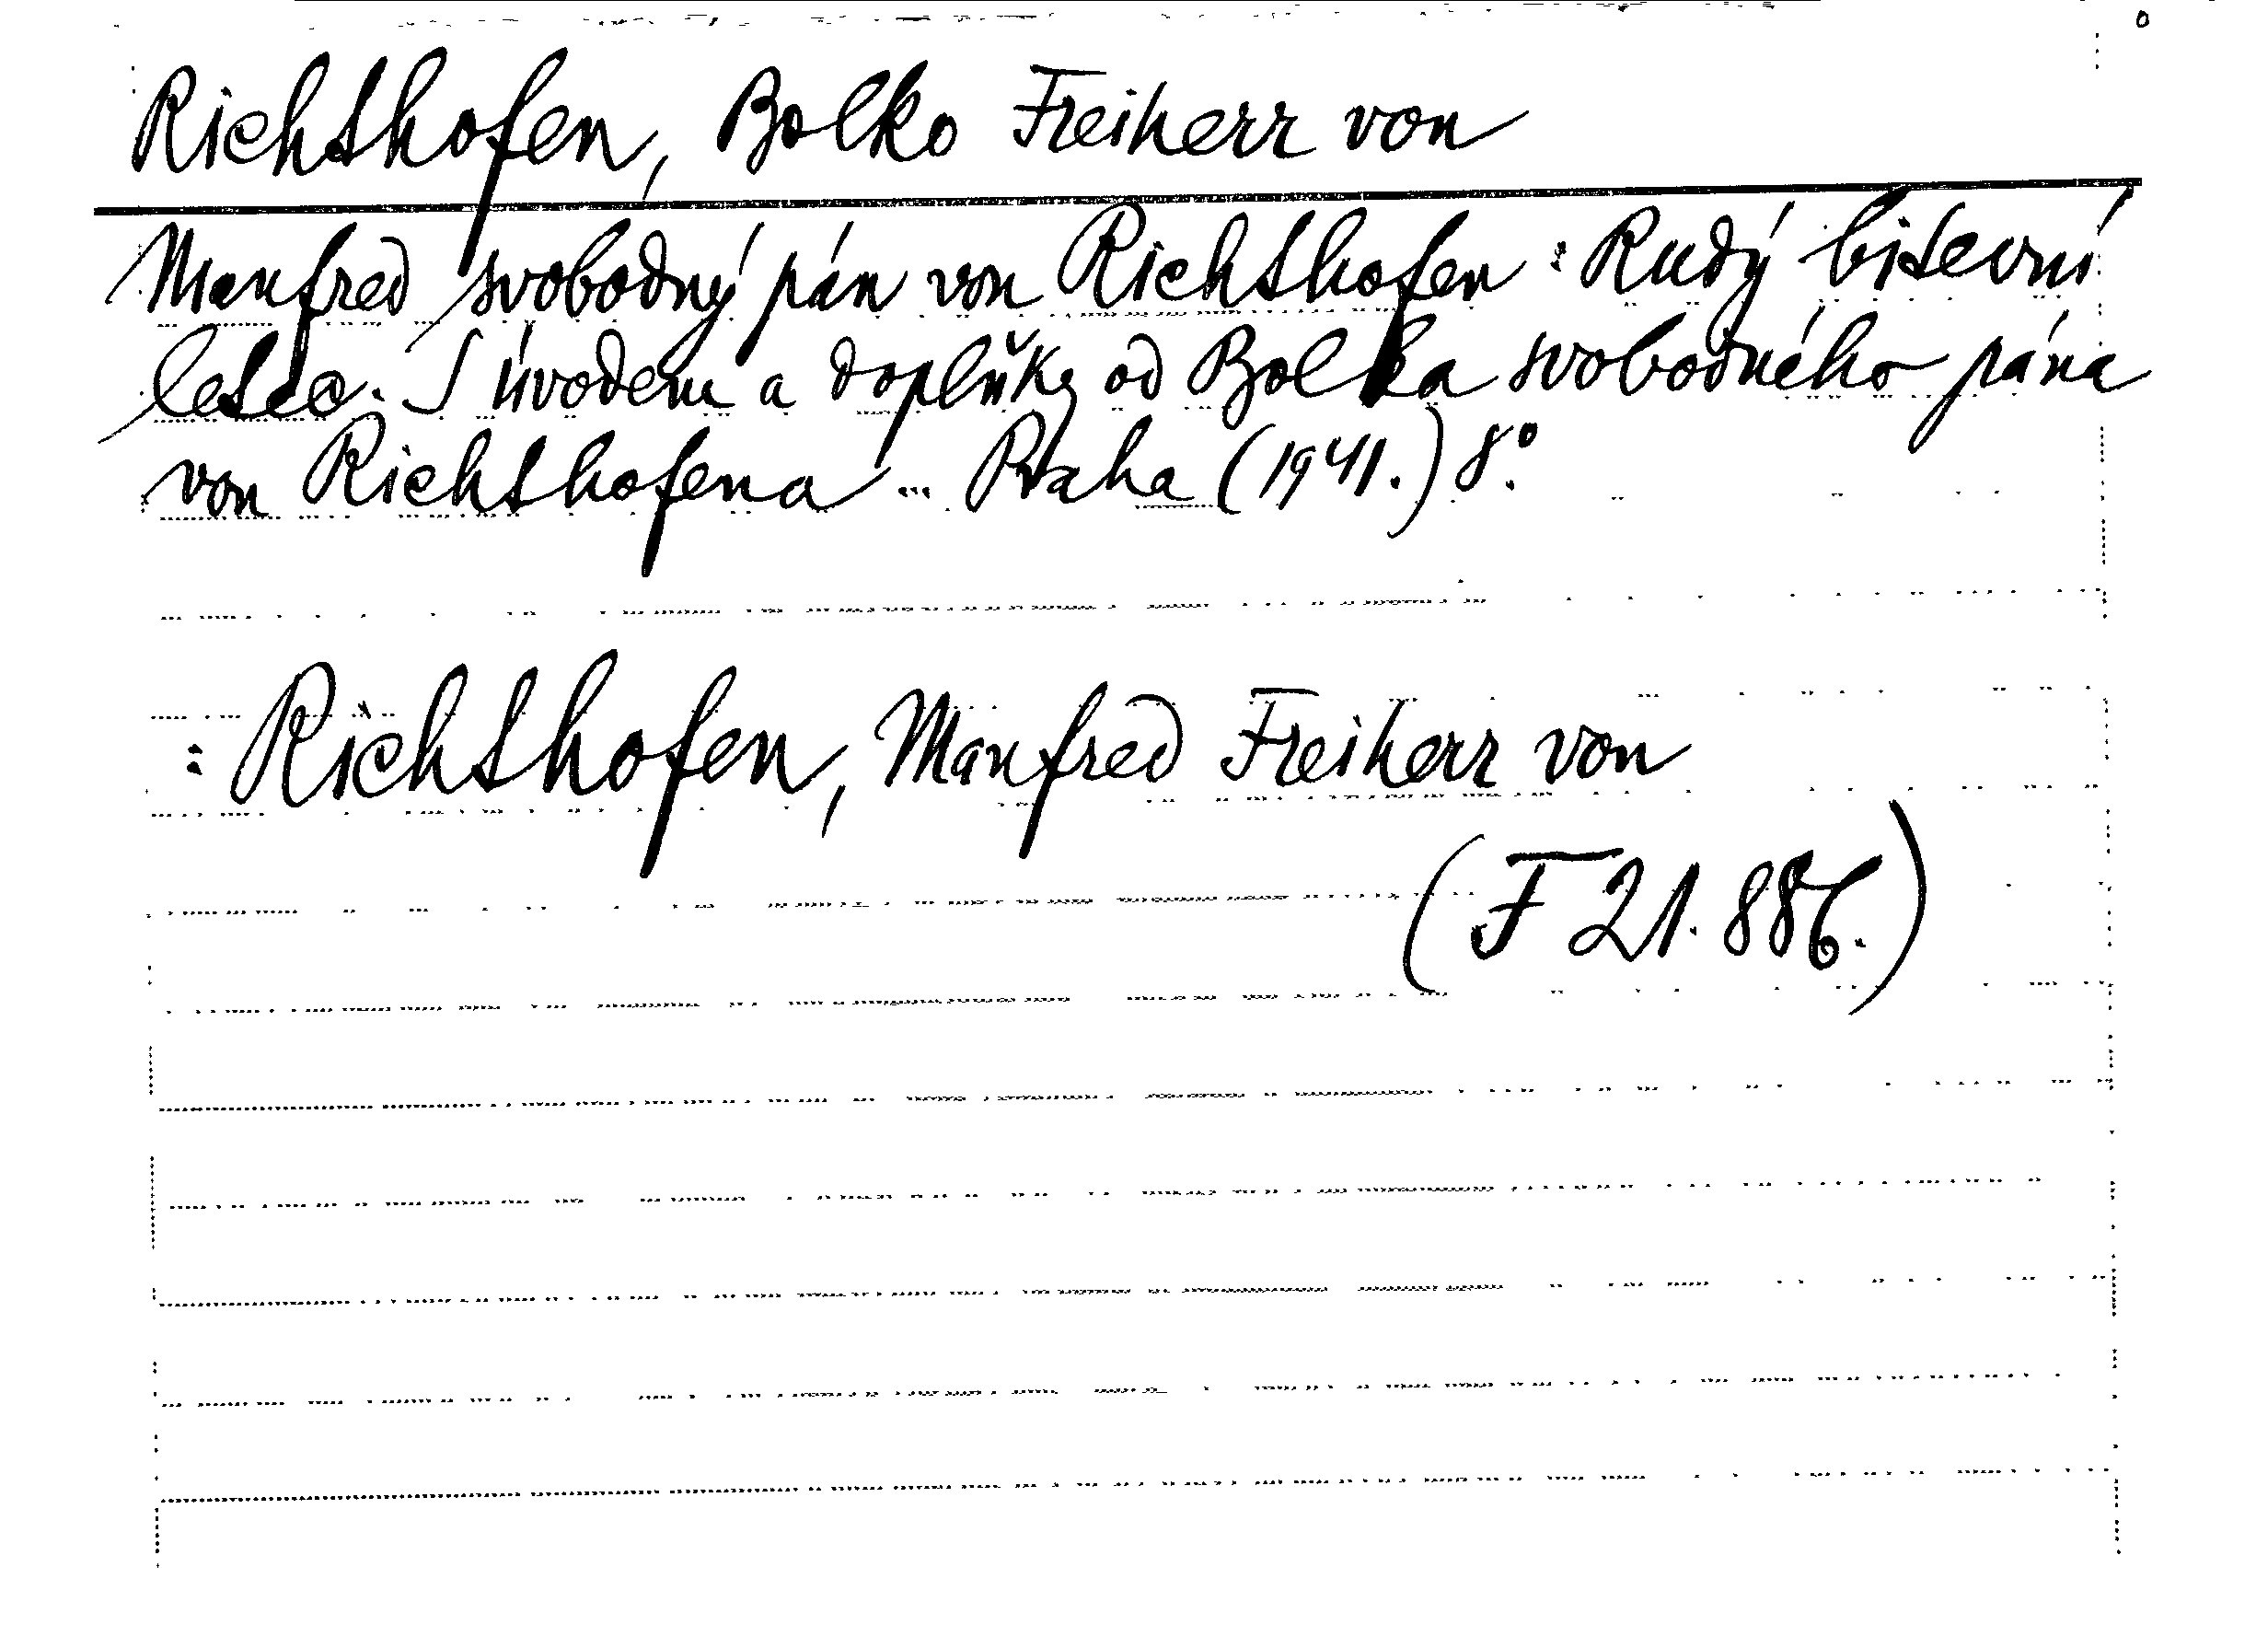 Richthofen, Bolko Freiherr von
Manfred svobodný pán von Richthofen: Rudý bitevní
letec. S úvodem a doplňky od Bolka svobodného pána
von Richthofena... Praha (1941.) 8°.
: Richthofen, Manfred Freiherr von
(F 21.886.)